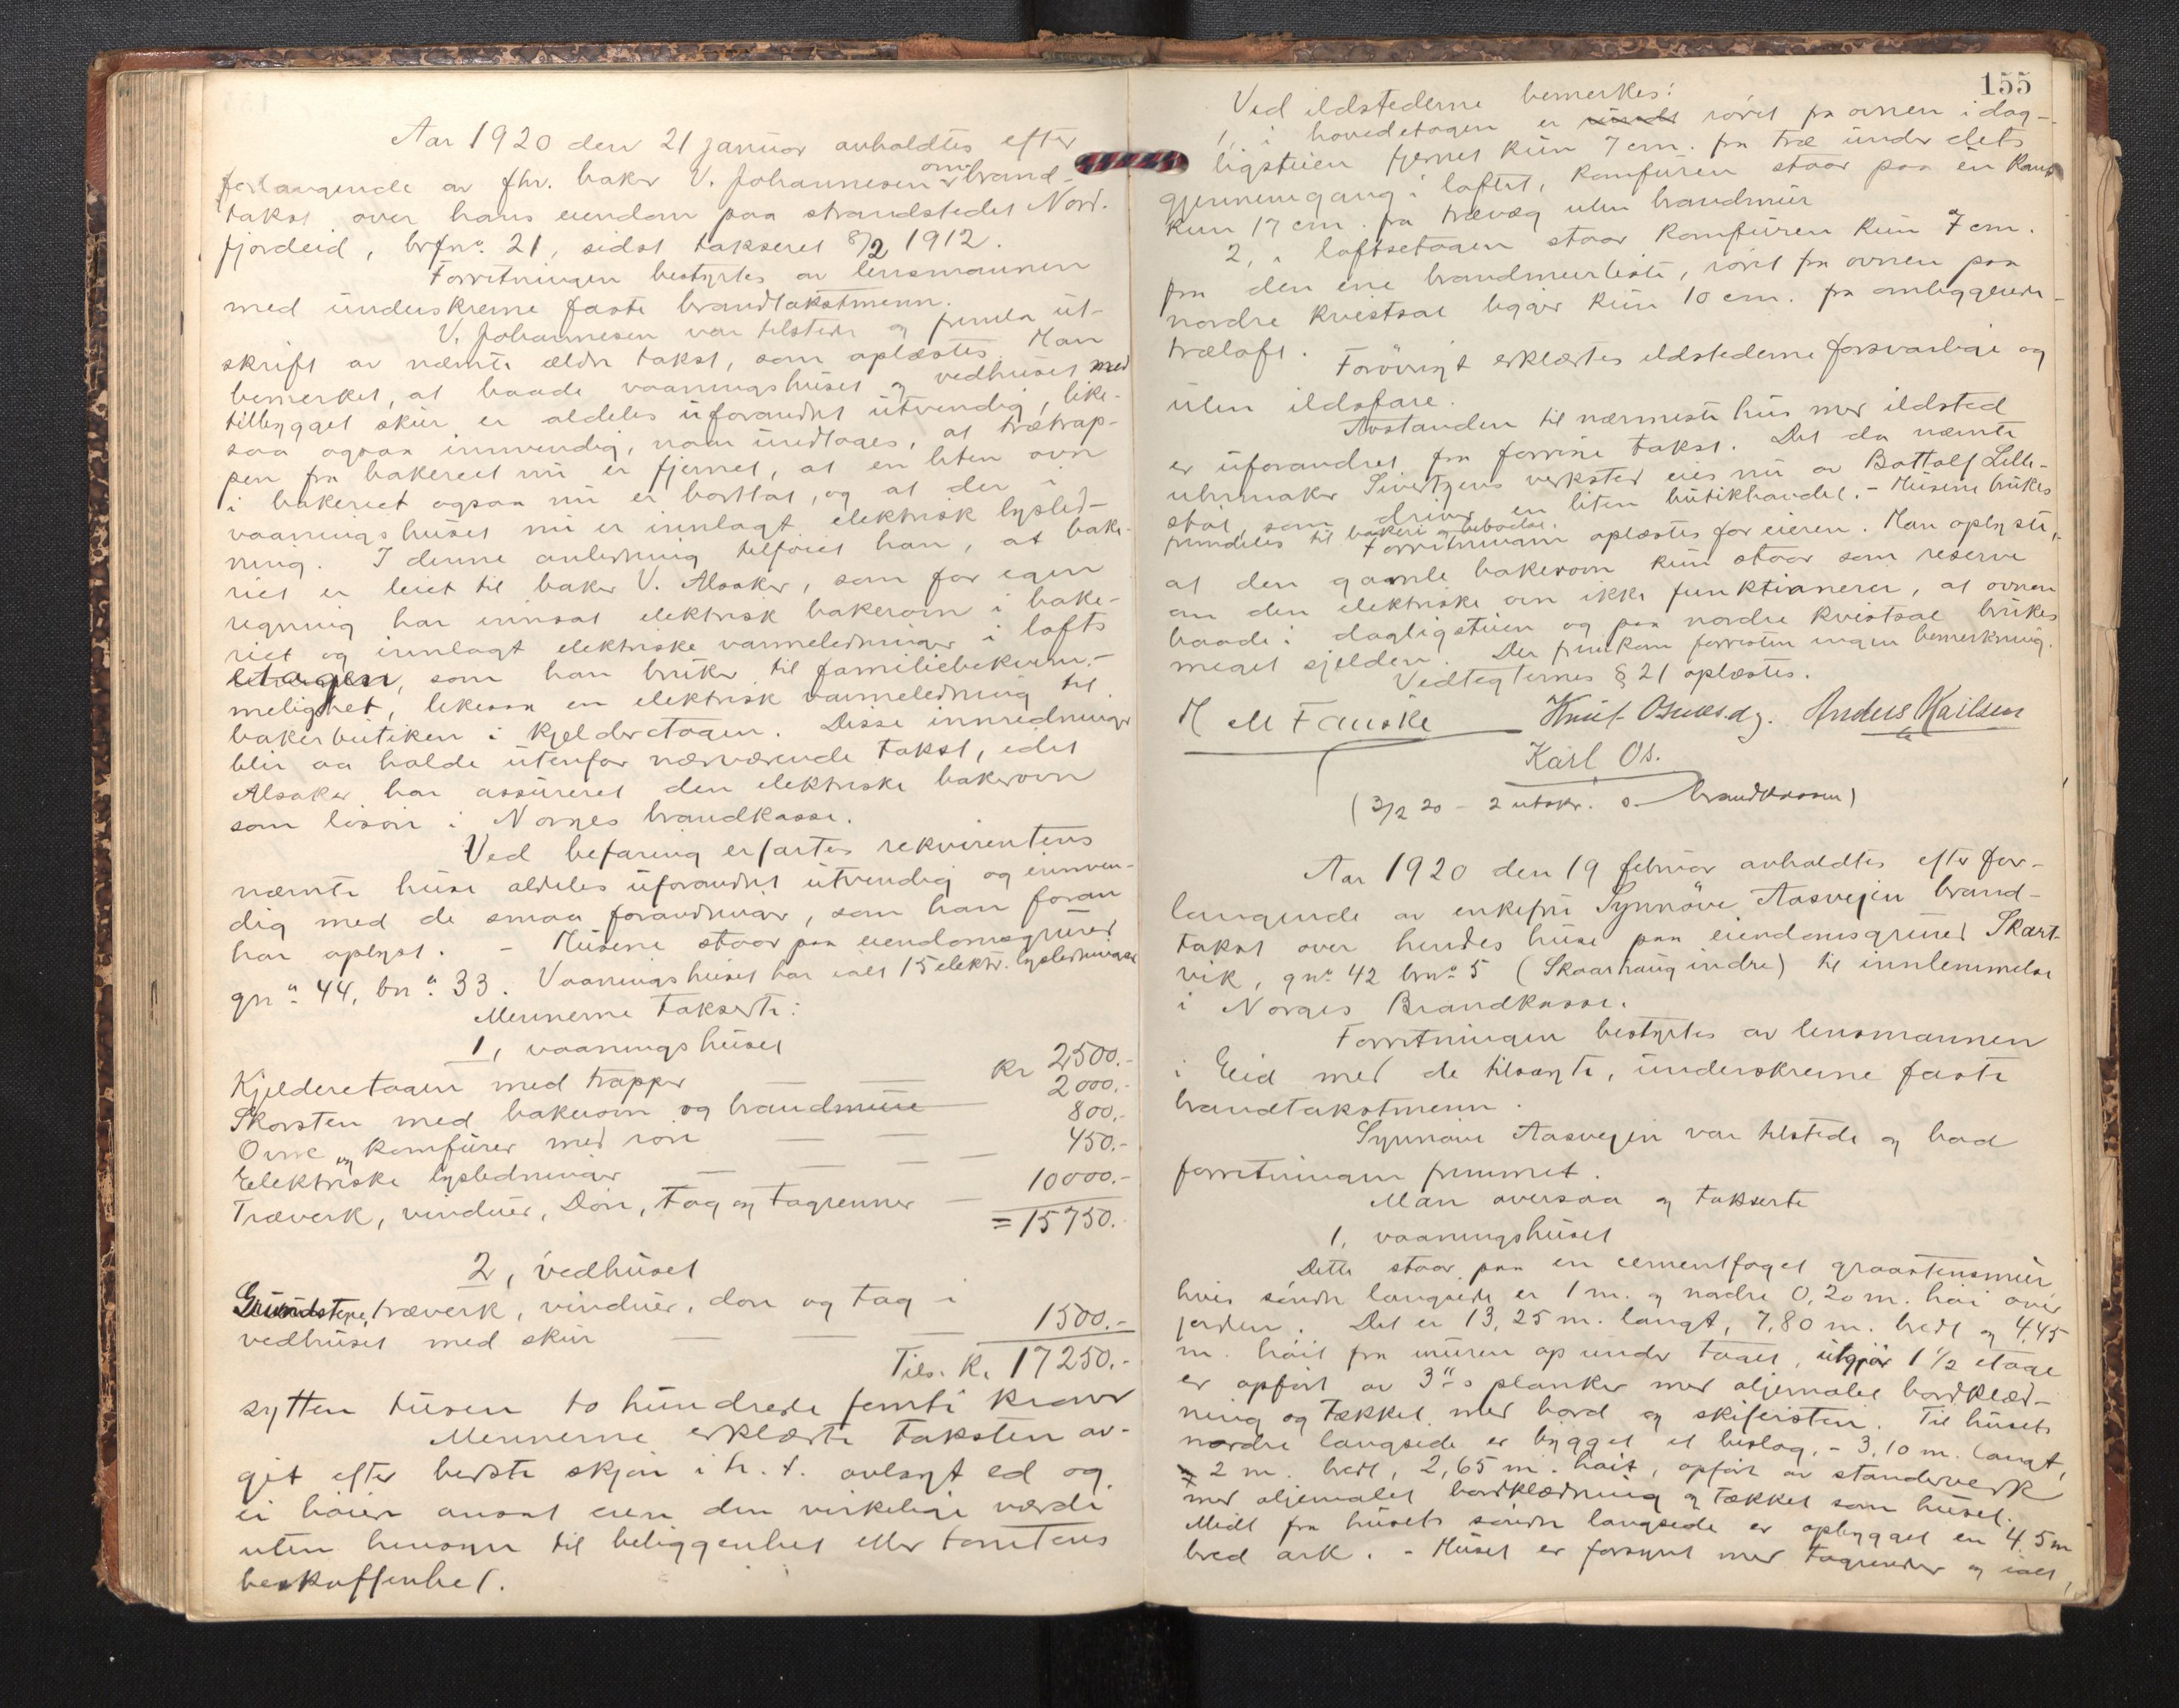 Aar 1920 den 21 januar avholdtes efter
forlangende av fhv. baker V. Johannesen om brand-
takst over hans eiendom paa strandstedet Nord-
fjordeid, brfno. 21, sidst takseret 8/2 1912.
Forretningen bestyrtes av lensmannen
med underskrevne faste brandtakstmenn.
V. Johannesen var tilstede og fremla ut-
skrift av nævnte ældre takst, som oplæstes. Han
bemerket, at baade vaaningshuset og vedhuset med
tilbygget skur er aldeles uforandret utvendig, like-
saa ogsaa innvendig, naar undtages, at trætrap-
pen fra bakeriet nu er fjernet, at en liten ovn
i bakeriet ogsaa nu er borttat, og at der i
vaaningshuset nu er innlagt elektrisk lysled-
ning. I denne anledning tilføiet han, at bake-
riet er leiet til baker V. Alsaker, som for egen
regning har innsat elektrisk bakerovn i bake-
riet og innlagt elektriske varmeledninger i lofts
etagen, som han bruker til familiebekvem-
melighet, likesaa en elektrisk varmeledning til
bakerbutiken i kjelderetagen. Disse innredninger
blir aa holde utenfor nærværende takst, idet
Alsaker har assureret den elektriske bakerovn
som løsøre i Norges brandkasse.
Ved befaring erfartes rekvirentens
nævnte huse aldeles uforandret utvendig og innven-
dig med de smaa forandringer, som han foran
har oplyst. - Husene staar paa eiendomsgrund
gno. 44, bno. 33. Vaaningshuset har ialt 15 elektr. lysledninger
Mennerne takserte:
1, vaaningshuset
Kjelderetagen med trapper kr 2500.-
Skorsten med bakerovn og brandmure 2000.-
Ovne og komfurer med rør 800.-
Elektriske lysledninger 450.-
Træverk, vinduer, Døre, Tag og Tagrenner 10000.-
= 15750.
2, vedhuset
Grundstene, træverk, vinduer, dør og tag i
vedhuset med skur 1500.-
Tils. kr. 17250.-
sytten tusen to hundrede femti kroner
Mennerne erklærte taksten av-
git efter bedste skjøn i h. t. avlagt ed og
ei høiere ansat enn den virkelige værdi
uten hensyn til beliggenhet eller tomtens
beskaffenhet.
155
Ved ildstederne bemerkes:
1, i hovedetagen er røret fra ovnen i dag-
ligstuen fjernet kun 7 cm. fra træ under dets
gjennemgang i loftet, komfuren staar paa en kant
kun 17 cm. fra trævæg uten brandmur
2, i loftsetagen staar komfuren kun 7 cm.
fra den ene brandmurliste, røret fra ovnen paa
nordre kvistsal ligger kun 10 cm. fra omliggende
træloft.
Forøvrigt erklærtes ildstederne forsvarlige og
uten ildsfare.
Avstanden til nærmeste hus med ildsted
er uforandret fra forrige takst. Det da nævnte
uhrmaker Sivertsens verksted eies nu av Bottolf Lille-
støl, som driver en liten butikhandel. - Husene brukes
fremdeles til bakeri og beboelse.
Forretningen oplæstes for eieren. Han oplyste,
at den gamle bakerovn kun staar som reserve
om den elektriske ovn ikke funktionerer, at ovnen
baade i dagligstuen og paa nordre kvistsal brukes
meget sjelden. Der fremkom forresten ingen bemerkning.
Vedtegternes § 21 oplæstes.
Knut Anders Karlsen
Karl Os.
(3/2 20 - 2 utskr. s. brandkassen)
Aar 1920 den 19 februar avholdtes efter for-
langende av enkefru Synnøve Aasvejen brand-
takst over hendes huse paa eiendomsgrund Skart-
vik, gno. 42 bno. 5 (Skaarhaug indre) til innlemmelse
i Norges Brandkasse.
Forretningen bestyrtes av lensmannen
i Eid med de tilsagte, underskrevne faste
brandtakstmenn.
Synnøve Aasvejen var tilstede og bad
forretningen fremmet.
Man oversaa og takserte
1, vaaningshuset
Dette staar paa en cementfoget graastensmur,
hvis søndre langside er 1 m. og nordre 0,20 m. høi over
jorden. Det er 13,25 m. langt, 7,80 m. bredt og 4,45
m. høit fra muren op under taget, utgjør 1 1/2 etage
er opført av 3"s planker med oljemalet bordklæd-
ning og tækket med bord og skifersten. Til husets
nordre langside er bygget et bislag, - 3,10 m. langt,
2 m. bredt, 2,65 m. høit, opført av standerverk
med oljemalet bordklædning og tækket som huset.
Midt fra husets søndre langside er opbygget en 4,5 m
bred ark. - Huset er forsynt med tagrender og ialt,